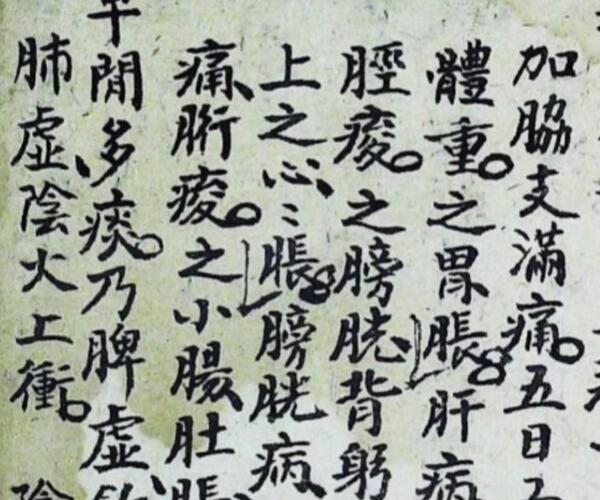 加脇支滿痛五日
體重之胃脹肝病
脛痠之膀胱背躬
上之心〻脹膀胱病
痛胻痠之小腸肚脹
平閒多痰乃脾虛
肺虛陰火上衝陰